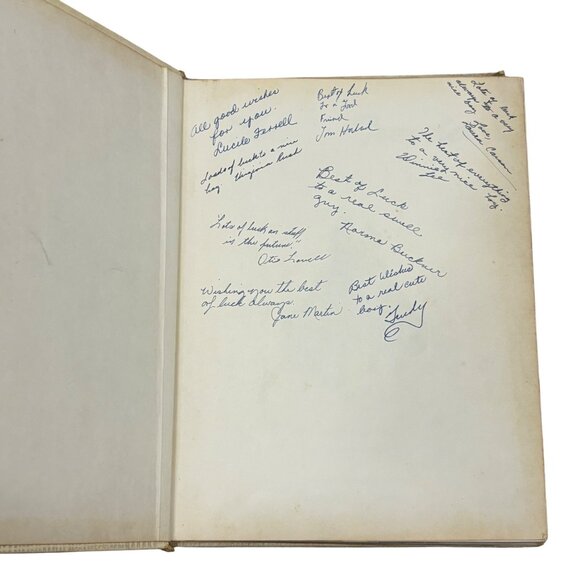 All good wishes
for you.
Lucile
Loads of luck to a nice
boy Virginia
Best of Luck
to a Good
Friend
Tom
Lots of luck
to a boy
always
nice boy Love
The best of everything
to a very nice boy
Lee
Best of Luck
to a real swell
guy.
Norma Buckner
Lots of luck an stuff,
in the future."
Otis Lovell
Wishing you the best
of luck always.
Jane Martin
Best Wishes
to a real cute
boy.
Trudy